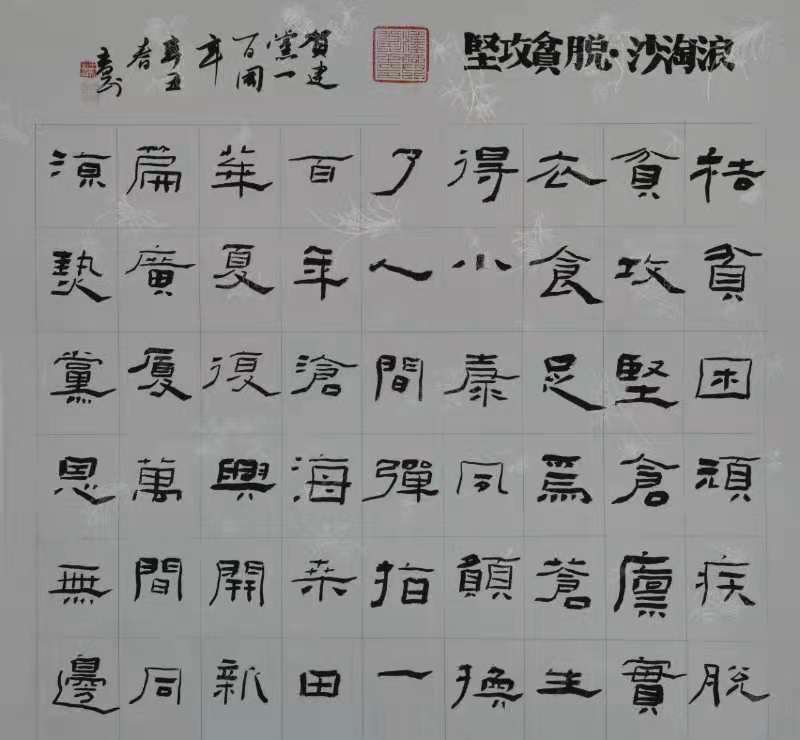 浪淘沙·脫貧攻堅
拮貧困頑疾脫
貧攻堅倉廩實
衣食足爲蒼生
得小康同顔換
了人間彈指一
百年滄海桑田
華夏復興開新
篇廣廈萬間同
涼熱黨恩無邊
賀建
黨一
百周
年
辛丑
春